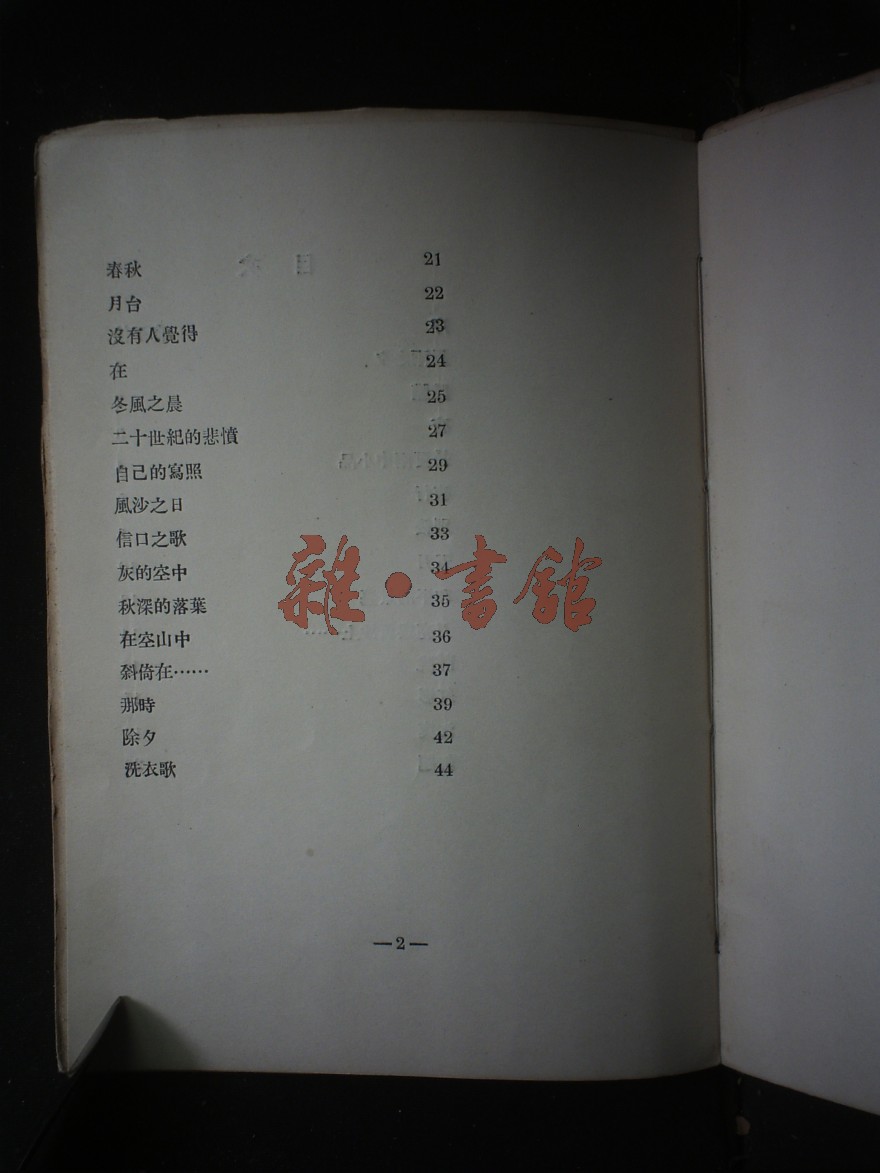 春秋 21
月台 22
沒有人覺得 23
在 24
冬風之晨 25
二十世紀的悲憤 27
自己的寫照 29
風沙之日 31
信口之歌 33
灰的空中 34
秋深的落葉 35
在空山中 36
斜倚在…… 37
那時 39
除夕 42
洗衣歌 44
雜·書館
—2—